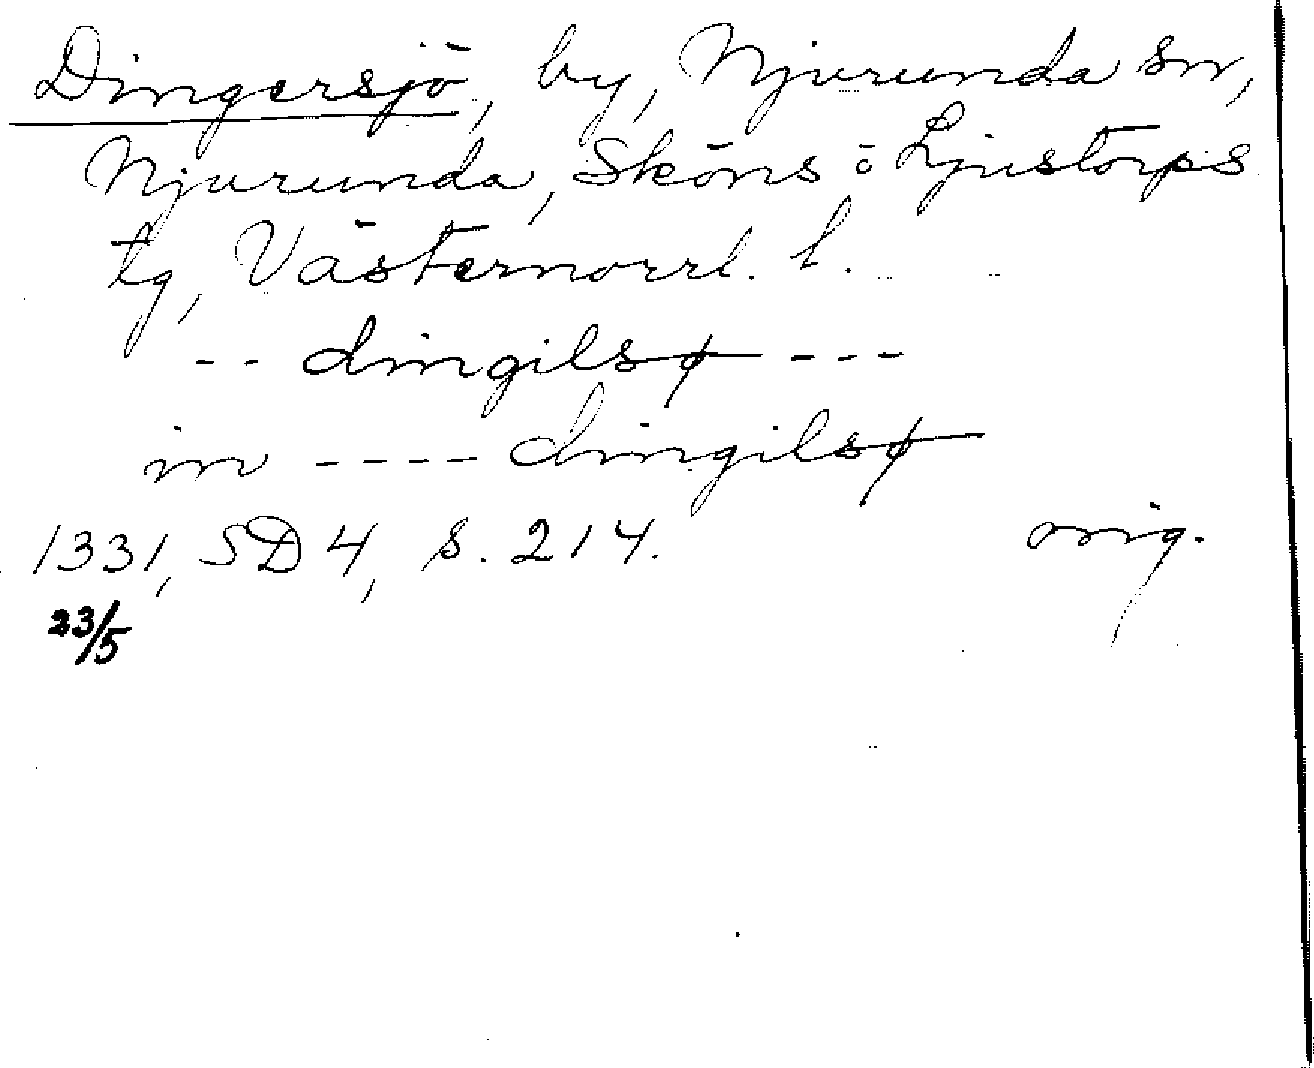 Dingersjö, by, Njurunda sn,
Njurunda, Sköns o Ljustorps
tg, Västernorrl. l.
-- dingilsø ---
in ---- dingilsø
1331, SD 4, s. 214. orig.
23/5